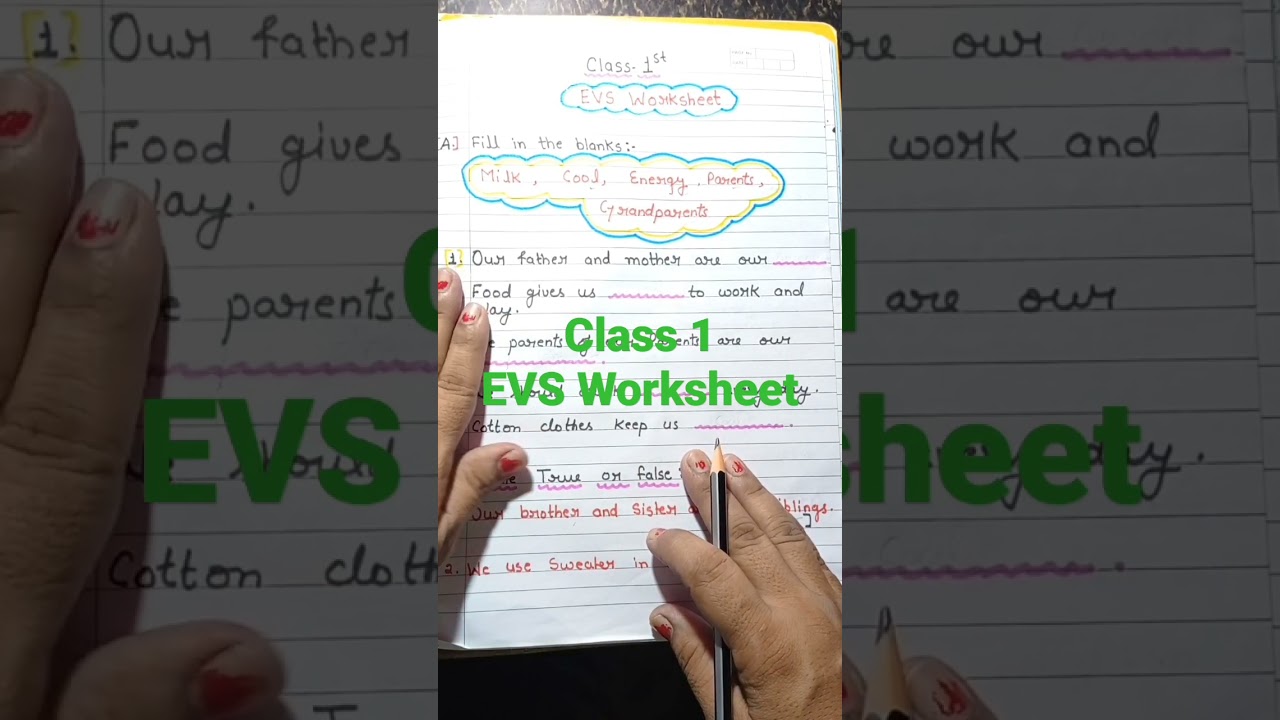 Class- 1st
EVS Worksheet
[A] Fill in the blanks:-
Milk, Cool, Energy, Parents,
Grandparents
[1. Our father and mother are our
Food gives us to work and
parents are our
day.
Cotton clothes keep us .
True or false
Our brother and Sister
2. We use Sweater in
Class 1
EVS Worksheet